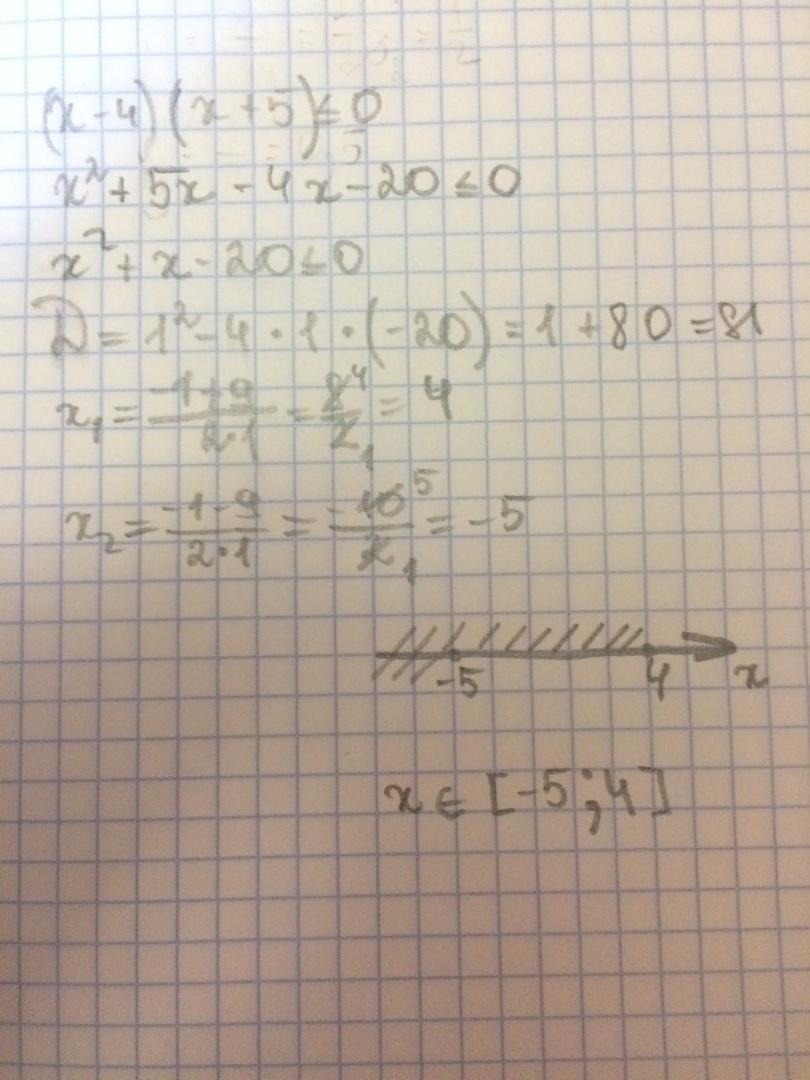 (x-4)(x+5)≤0
x²+5x-4x-20≤0
x²+x-20≤0
D=1²-4·1·(-20)=1+80=81
x₁=(-1+9)/(2·1)=8⁴/2₁=4
x₂=(-1-9)/(2·1)=-10⁵/2₁=-5
-5 4 x
x∈[-5;4]